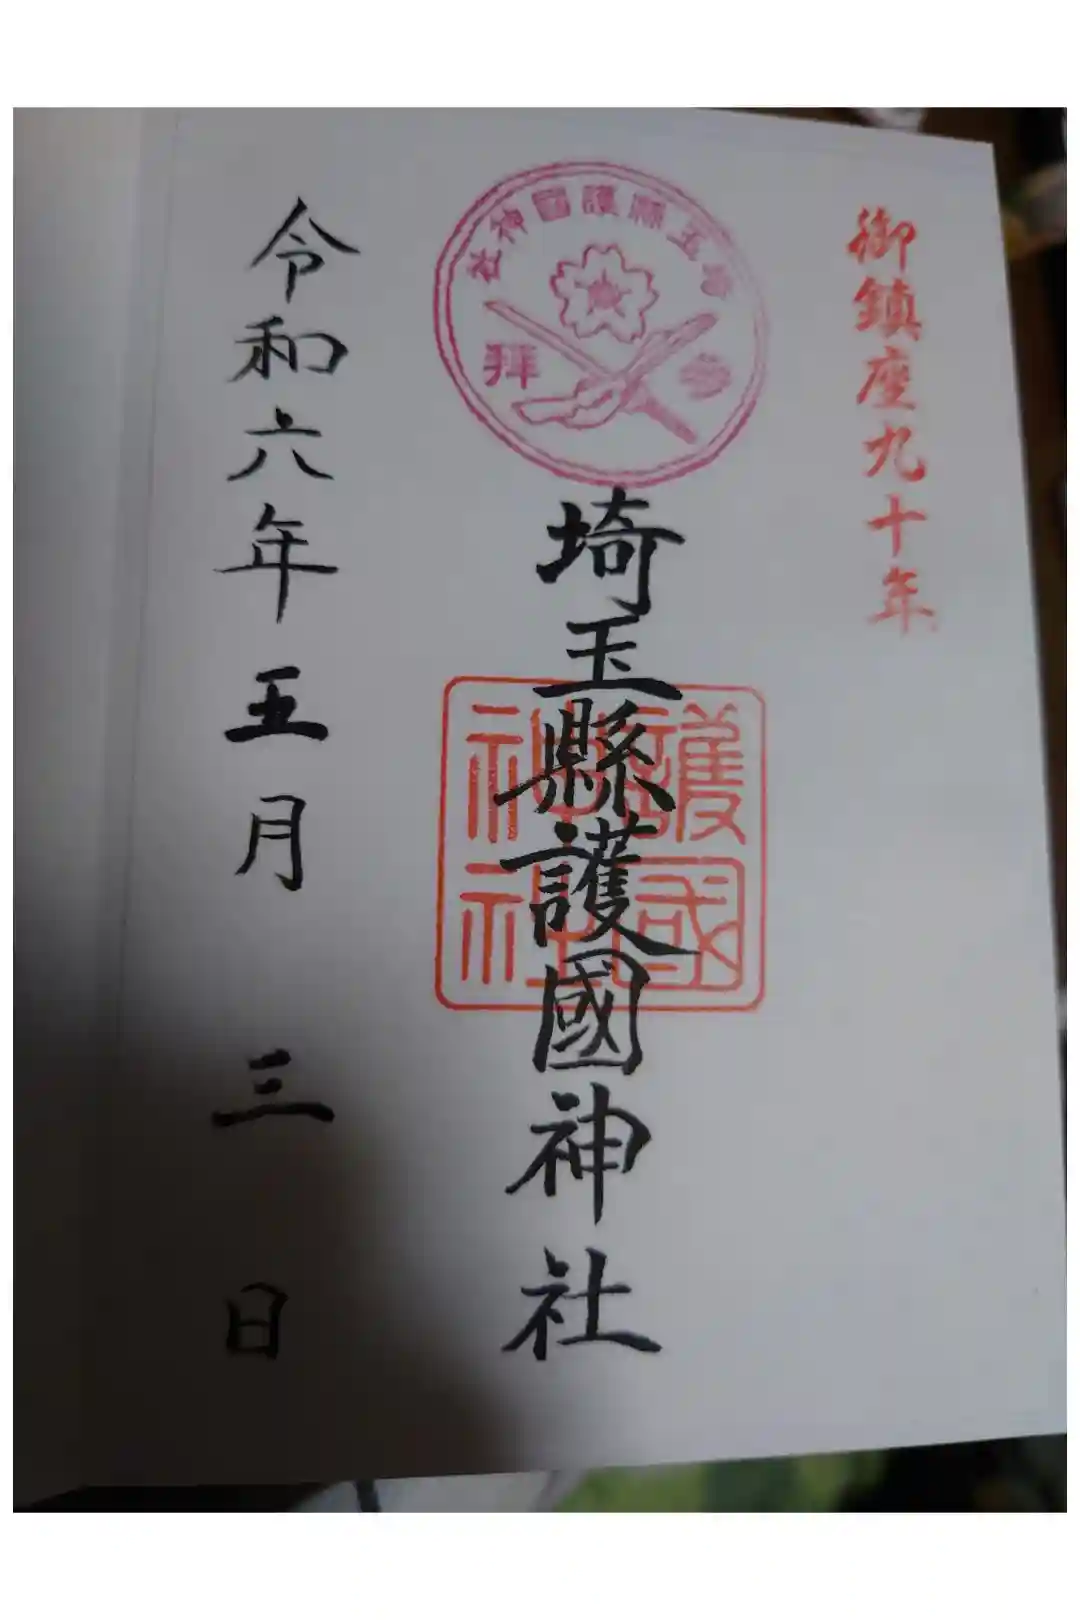 御鎮座九十年
埼玉縣護國神社
参拝
埼玉縣護國神社
護國
神社
令和六年五月三日